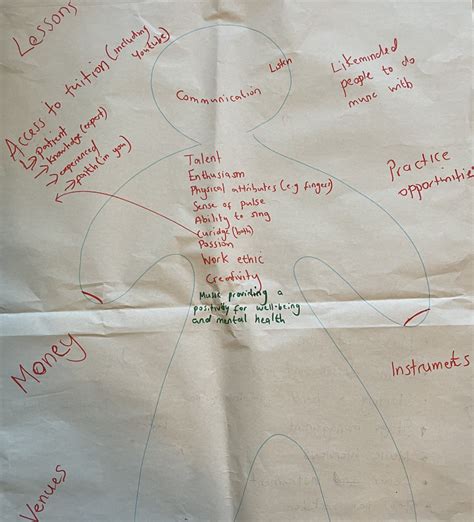 Lessons
Access to tuition (including
Youtube)
↳ patient
→ knowledge (expert)
→ experienced
→ faith (in you)
Communication
Likeminded
people to do
music with
Talent
Enthusiasm
Physical attributes (e.g fingers)
Sense of pulse
Ability to sing
(both)
Passion
Work ethic
Creativity
Music providing a
positivity for well-being
and mental health
Practice
opportunities
Money
Instruments
Venues